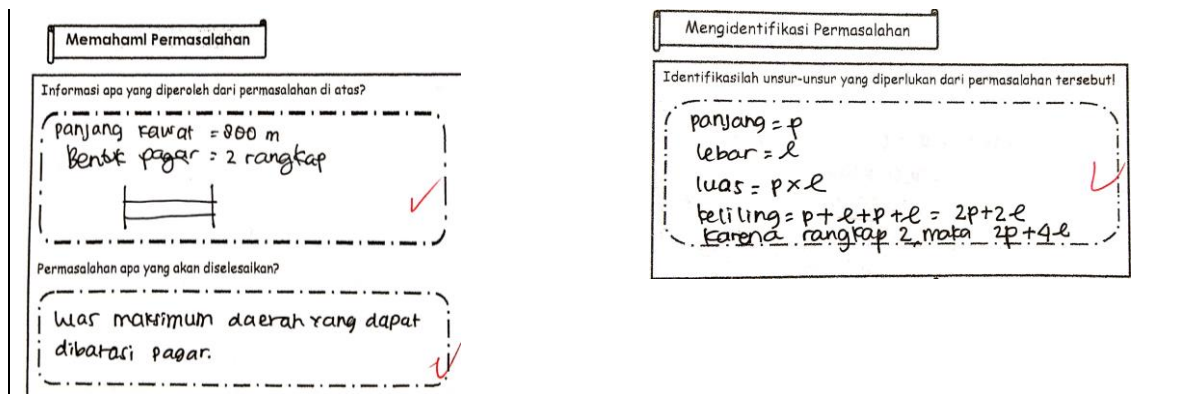 Memahami Permasalahan
Informasi apa yang diperoleh dari permasalahan di atas?
panjang kawat = 800 m
Bentuk pagar = 2 rangkap
Permasalahan apa yang akan diselesaikan?
luas maksimum daerah yang dapat
dibatasi pagar.
Mengidentifikasi Permasalahan
Identifikasilah unsur-unsur yang diperlukan dari permasalahan tersebut!
panjang = p
lebar = l
luas = p x l
keliling = p + l + p + l = 2p + 2l
karena rangkap 2, maka 2p + 4l